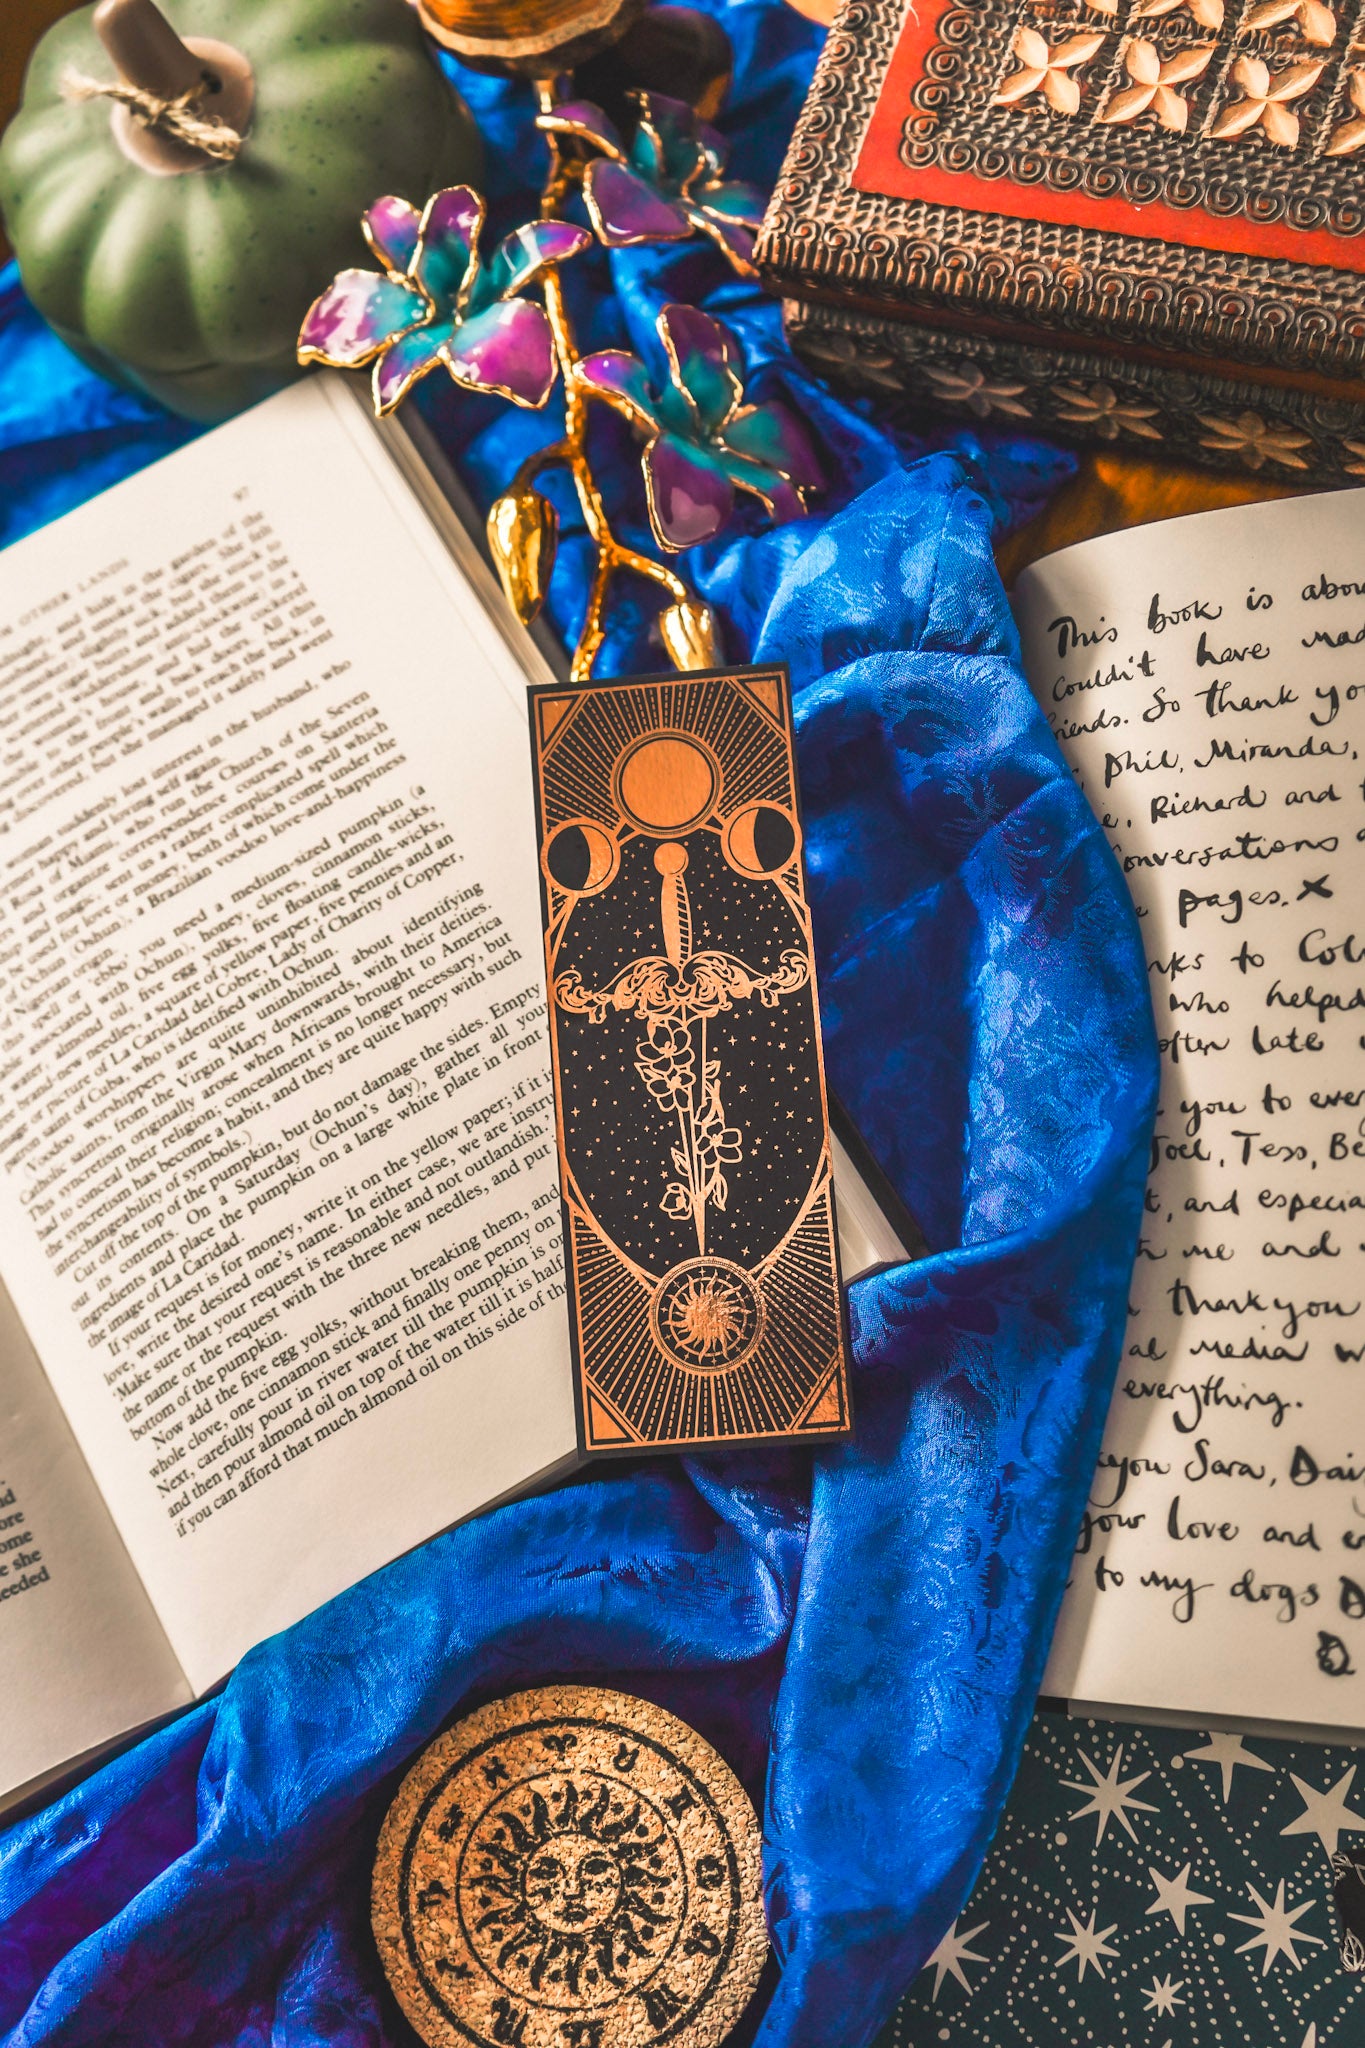 97
OTHER LANDS
hide in the garden of the
and smoke the cigars. She left
own cigar butts, but she snuck to the
women's house and added them to the
wall to read this, back, in
over other people's walls
discovered, but she managed it safely. All this
went
woman suddenly lost interest in the husband, who
happy and loving self again.
Rosa of Miami, who run the Church of the Seven
and organize correspondence courses on Santeria
and magic, sent us a rather complicated spell which
be used for love or money, both of which come under the
of Ochun (Oshun), a Brazilian voodoo love-and-happiness
of Nigerian origin.
this spell or 'ebbo' you need a medium-sized pumpkin (a
associated with Ochun), honey, cloves, cinnamon sticks,
water, almond oil, five egg yolks, five floating candle-wicks,
brand-new needles, a square of yellow paper, five pennies and an
image or picture of La Caridad del Cobre, Lady of Charity of Copper,
patron saint of Cuba, who is identified with Ochun.
Voodoo worshippers are quite uninhibited about identifying
Catholic saints, from the Virgin Mary downwards, with their deities.
This syncretism originally arose when Africans brought to America
had to conceal their religion; concealment is no longer necessary, but
the syncretism has become a habit, and they are quite happy with such
interchangeability of symbols.)
Cut off the top of the pumpkin, but do not damage the sides. Empty
out its contents. On a Saturday (Ochun's day), gather all your
ingredients and place the pumpkin on a large white plate in front
the image of La Caridad.
If your request is for money, write it on the yellow paper; if it is
love, write the desired one's name. In either case, we are instru
'Make sure that your request is reasonable and not outlandish.'
the name or the request with the three new needles, and put i
bottom of the pumpkin.
Now add the five egg yolks, without breaking them, and
whole clove, one cinnamon stick and finally one penny on
Next, carefully pour in river water till the pumpkin is
and then pour almond oil on top of the water till it is half
if you can afford that much almond oil on this side of the
ore
ome
e she
needed
This book is abou
couldn't have mad
friends. So thank yo
, Phil, Miranda,
e, Richard and
onversations
pages. x
nks to Col
who helped
often late
you to ever
Joel, Tess, Be
t, and especia
me and
thankyou
al media w
everything.
kyou Sara, Dai
your love and e
to my dogs